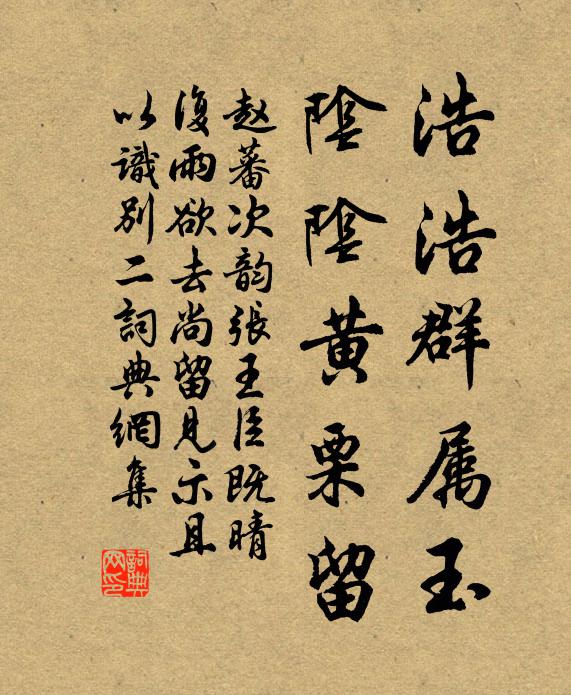 浩浩群属玉
陰陰黄栗留
赵蕃次韵張王臣既晴
復雨欲去尚留見示且
以識别二詞典網集
詞典網印